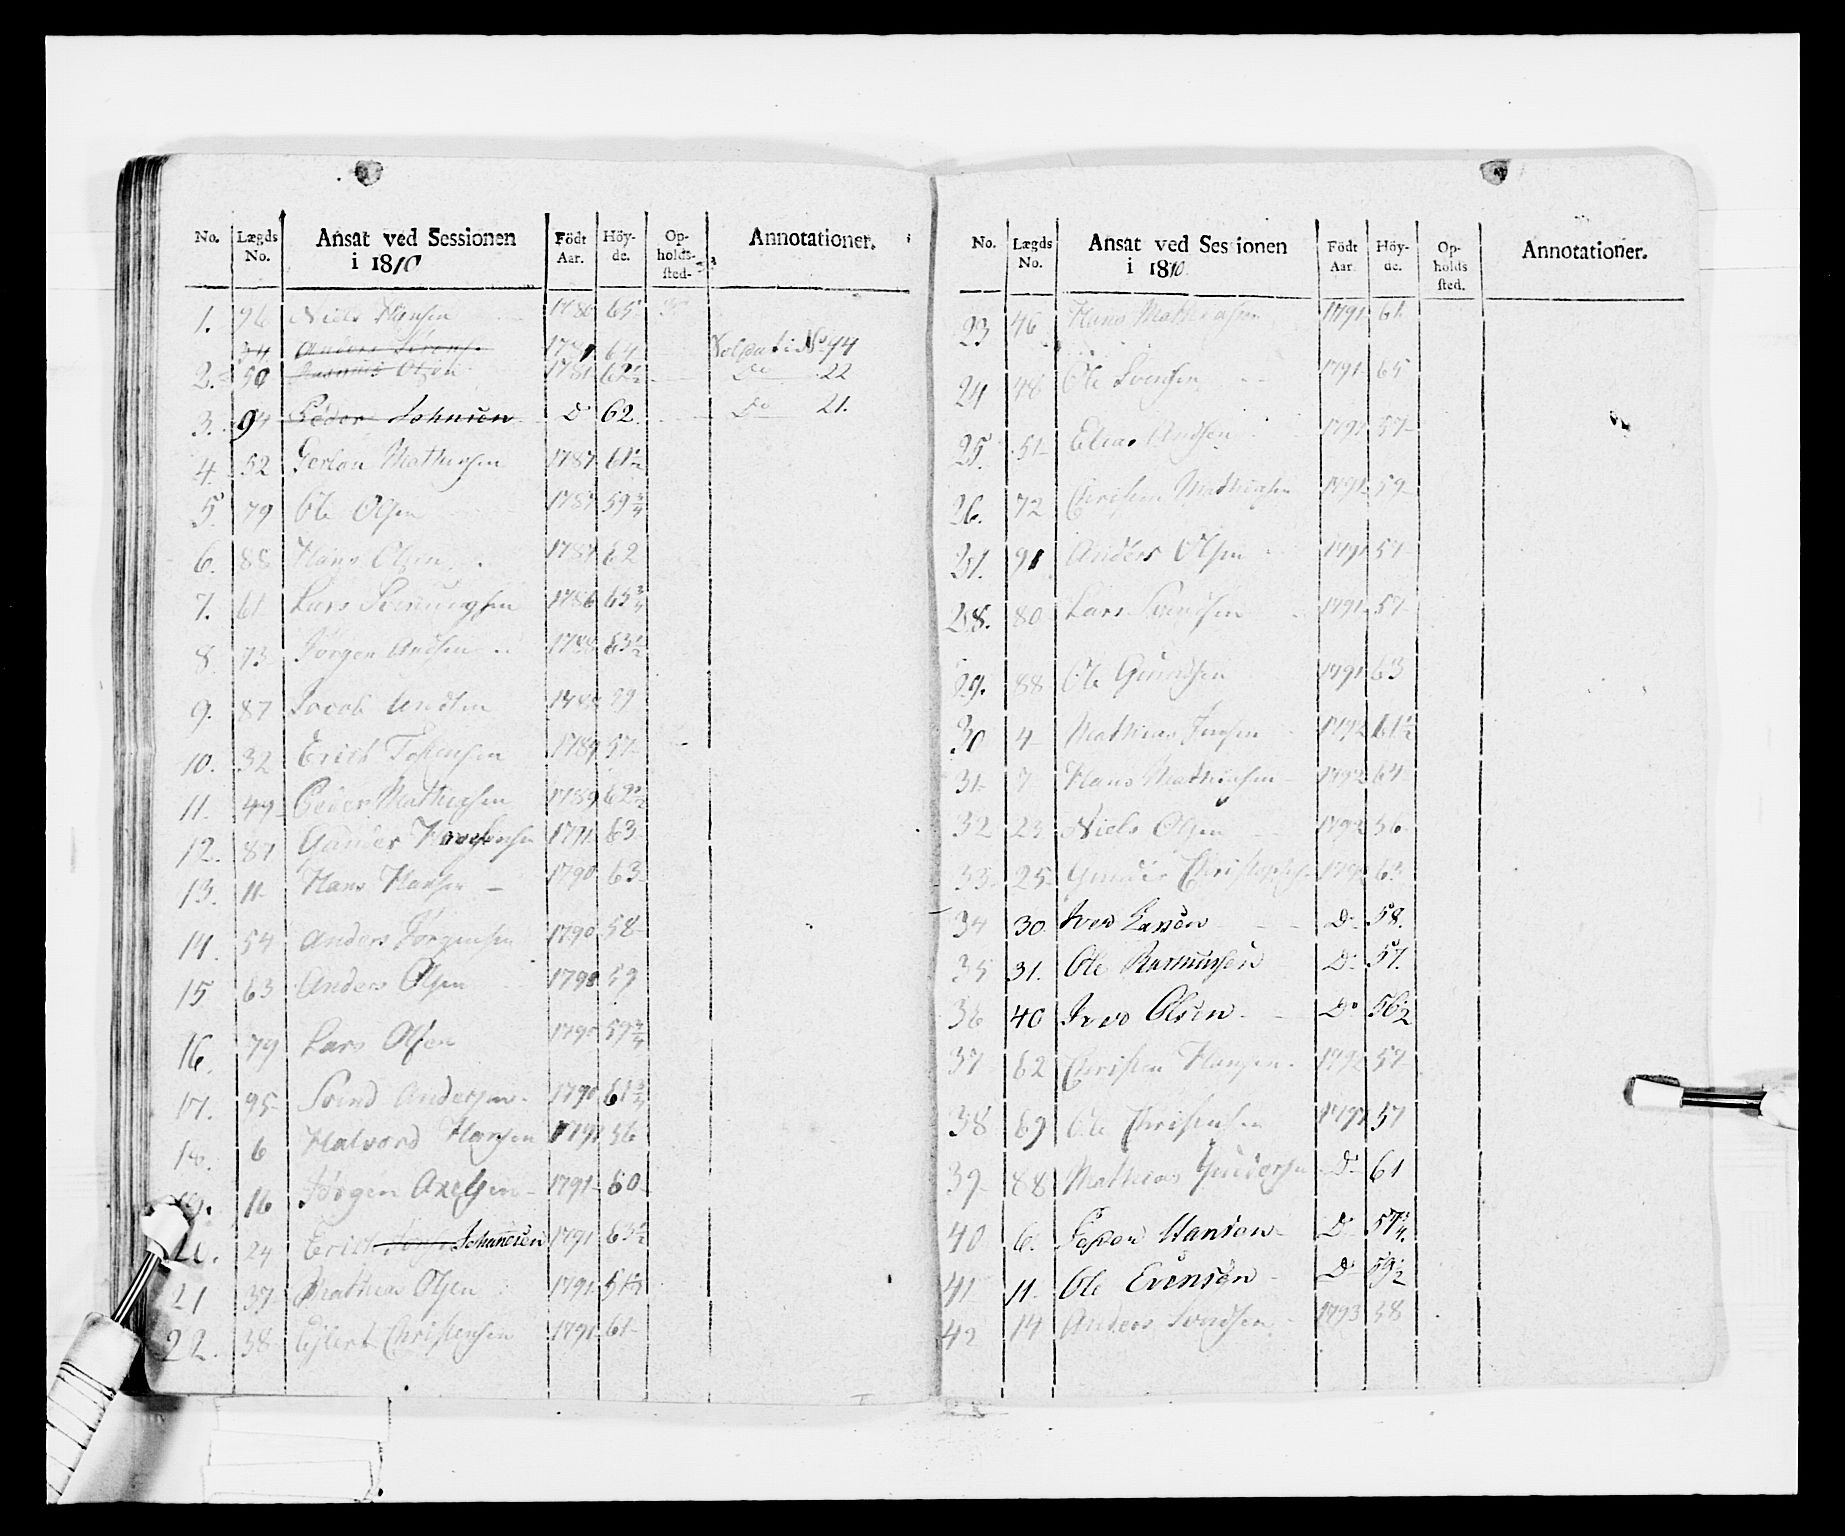 No. Lægds No. Ansat ved Sessionen i 1810 Födt Aar. Höy- de. Op- holds- sted. Annotationer.
1. 96 Niels Hansen 1786 65
34 Anders 1781 64 Soldat i No 44
2. 50 Rasmus Olsen 1781 62½ Do 22
3. 94 Peder Johnsen Do 62. Do 21.
4. 52 Mathiesen 1787 61½
5. 79 Ole Olsen 1787 59¾
6. 88 Hans Olsen 1787 62
7. 61 Lars 1786 65¾
8. 73 Jörgen Andsen 1788 63½
9. 87 Jacob
10. 32 Erich 1789 57
11. 49 Peder Mathiesen 1789 62½
12. 87 Gunder 1791 63
13. 11 Hans Hansen 1790 63
14. 54 Anders Jörgensen 1790 58
15 63 Anders Olsen 1790 59
16. 79 Lars Olsen 1790 59¾
17. 95 Svend Andersen 1790 61¾
18. 6 Halvord Hansen 1791 56
19. 16 Jörgen Axelsen 1791 60
24 Erich Johannesen 1791 63½
21 37 Mathias Olsen 1791
22. 38 Ejlert Christensen 1791 61
No. Lægds No. Ansat ved Sessionen i 1810 Födt Aar. Höy- de. Op- holds sted. Annotationer.
23 46 Hans Mathiasen 1791 61
24 48 Ole Svensen 1791 65
25. 51 Elias Andsen 1791 57
26. 72 Christen Mathiasen 1791 59
91 Anders Olsen 1791 57
28. 80 Lars Svendsen 1791 57
29. 88 Ole 1791 63
30 4 Mathias Jensen 1792 61½
31 7 Hans Mathiesen 1792 64
32 23 Niels Olsen 1792 56
33 25 Gunder Christophs 1792 63
34 30 Iver Larsen Do 58.
35 31. Ole Rasmussen Do 57.
36 40 Iver Olsen Do 56½
37 62 Christen Hansen 1792 57
38 69 Ole Christensen 1792 57
39 88 Mathias Gundersen Do 61
40 6. Hansen Do 57¼
41 11 Ole Evensen Do 59½
42 14 Anders Svendsen 1793 58